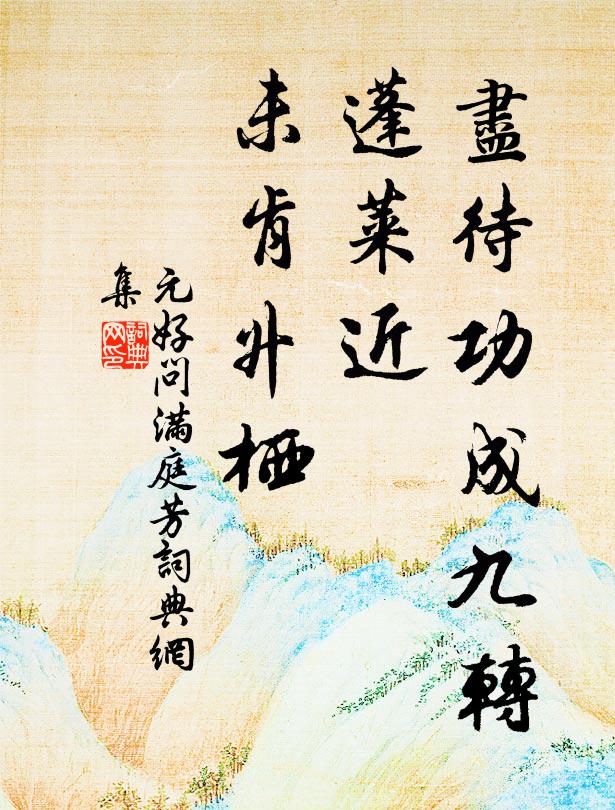 盡待功成九轉
蓬萊近
未肯升栖
元好問滿庭芳詞典網
集
詞典
网印